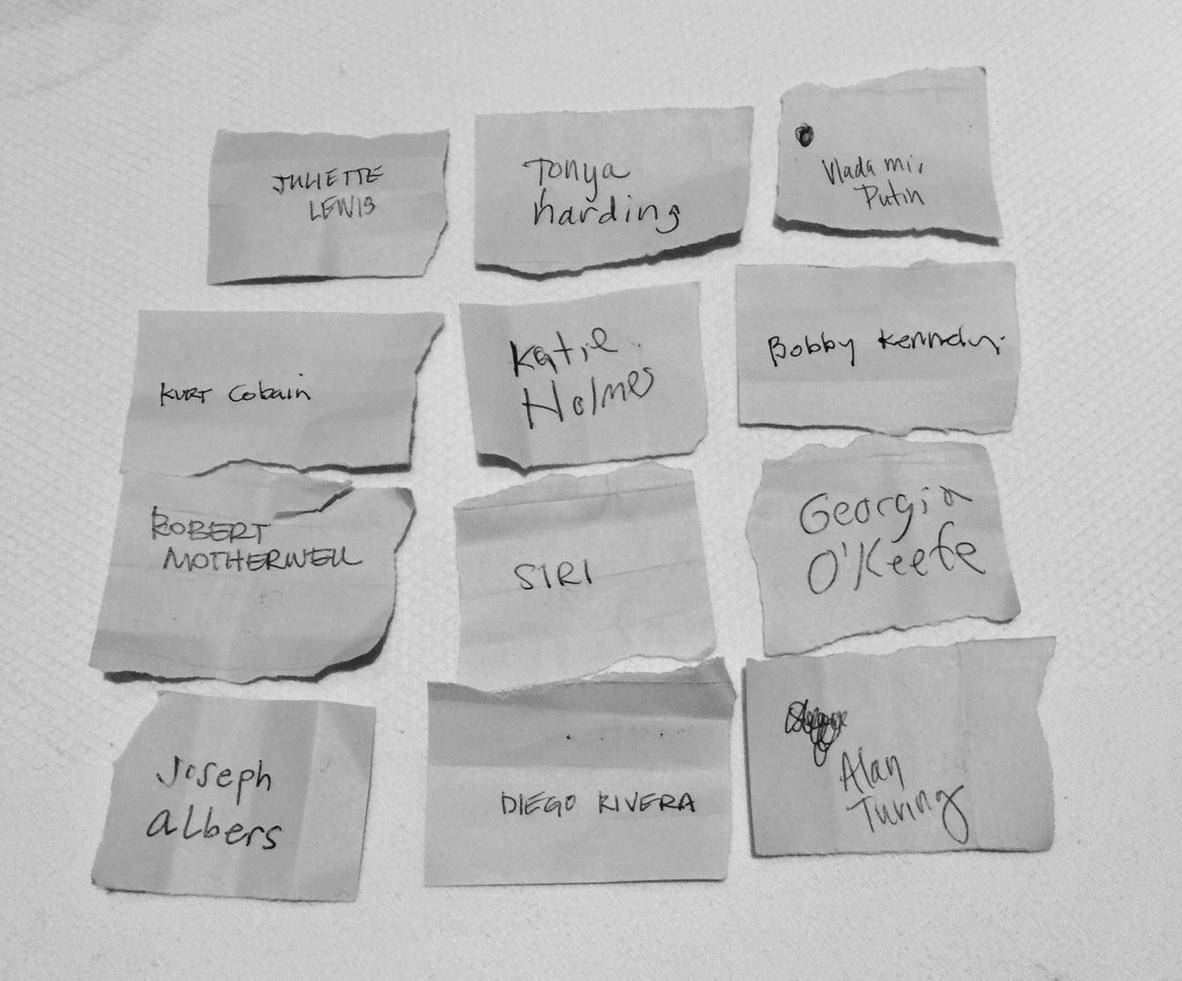 JULIETTE
LEWIS
Tonya
harding
Vladamir
Putin
KURT Cobain
Katie
Holmes
Bobby Kennedy
ROBERT
MOTHERWELL
SIRI
Georgia
O'Keefe
Joseph
albers
DIEGO RIVERA
Alan
Turing